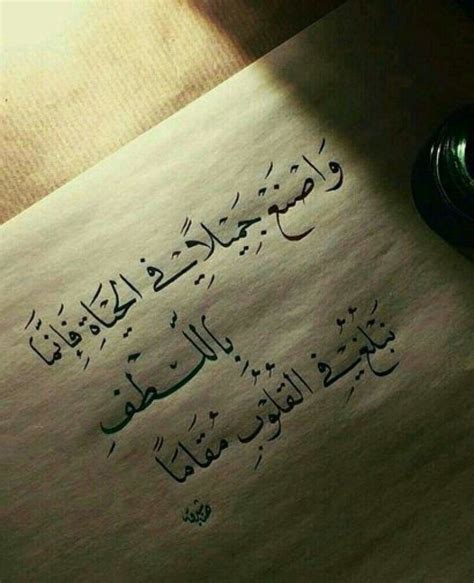 وَاصْنَعْ جَمِيْلاً فِي الحَيَاةِ فَإِنَّمَا
بِاللُّطْفِ
نَبْلُغُ فِي القُلُوْبِ مُقَامَاً